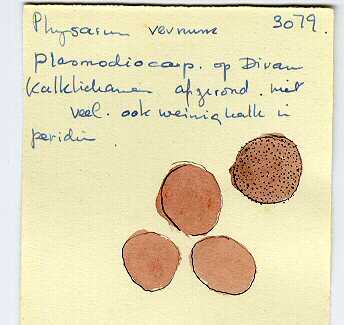 Physarum vernum 3079.
plasmodiocarp. op Divan
Kalklichamen afgerond. niet
veel. ook weinig kalk in
peridin